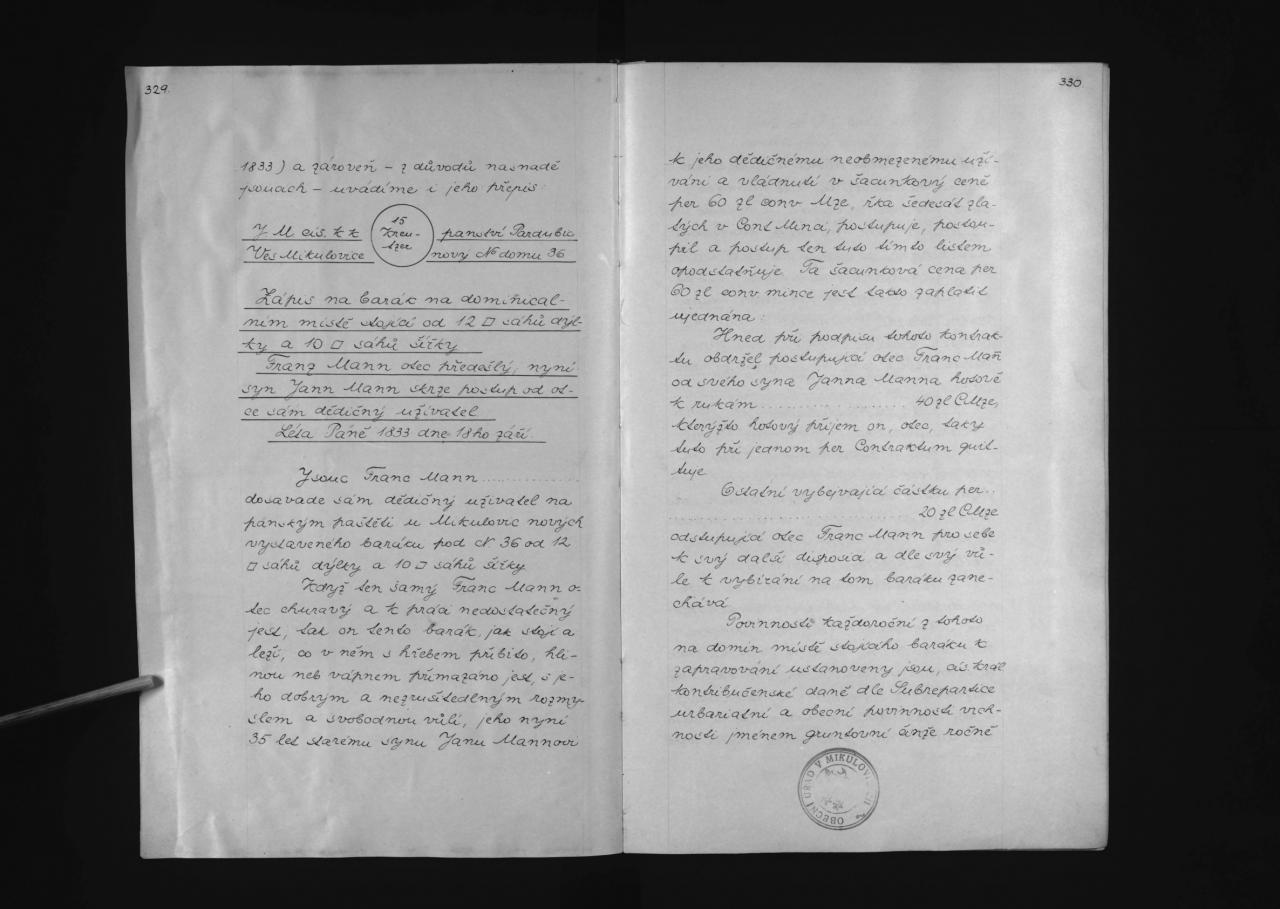 329.
1833) a zároveň – z důvodů nasnadě
jsoucch – uvádíme i jeho přepis:
15
Kreu-
tzer
J M cís. k k panství Pardubic
Ves Mikulovice nový No domu 36
Zápis na barák na dominical-
ním místě stojící od 12 □ sáhů dýl-
ky a 10 □ sáhů šířky
Franz Mann otec předešlý, nyní
syn Jann Mann skrze postup od ot-
ce sám dědičný uživatel
Léta Páně 1833 dne 18ho září.
Jsouc Franc Mann ............
dosavade sám dědičný uživatel na
panským paštěti u Mikulovic nových
vystaveného baráku pod N 36 od 12
□ sáhů dýlky a 10 □ sáhů šířky
Když ten samý Franc Mann o-
tec churavý a k práci nedostatečný
jest, tak on tento barák, jak stojí a
leží, co v něm s hřebem přibito, hli-
nou neb vápnem přimazáno jest, s je-
ho dobrým a nezrušitedlným rozmy-
slem a svobodnou vůlí, jeho nyní
35 let starému synu Janu Mannovi
330.
k jeho dědičnému neobmezenému uží-
vání a vládnutí v šacunkový ceně
per 60 zl conv Mze, řka šedesát zla-
tých v Cont Minci, postupuje, postou-
pil a postup ten tuto tímto listem
opodstatňuje. Ta šacunková cena per
60 zl conv. mince jest takto zaplatit
ujednána:
Hned při podpisu tohoto kontrak-
tu obdržel postupující otec Franc Mañ
od svého syna Janna Manna hotově
k rukám .................... 40 zl CMze,
kterýžto hotový příjem on, otec, taky
tuto při jednom per Contraktum quit-
tuje
Ostatní vybejvající částku per ..
.............................. 20 zl CMze
odstupující otec Franc Mann pro sebe
k svý další disposici a dle svý vů-
le k vybírání na tom baráku zane-
chává
Povinnosti každoroční z tohoto
na domin místě stojícího baráku k
zapravování ustanoveny jsou, cís. král
kontribučenské daně dle Subrepartice
urbariatní a obecní povinnosti vrch-
nosti jménem gruntovní činže ročně
OBECNÍ ÚŘAD V MIKULOVICÍCH